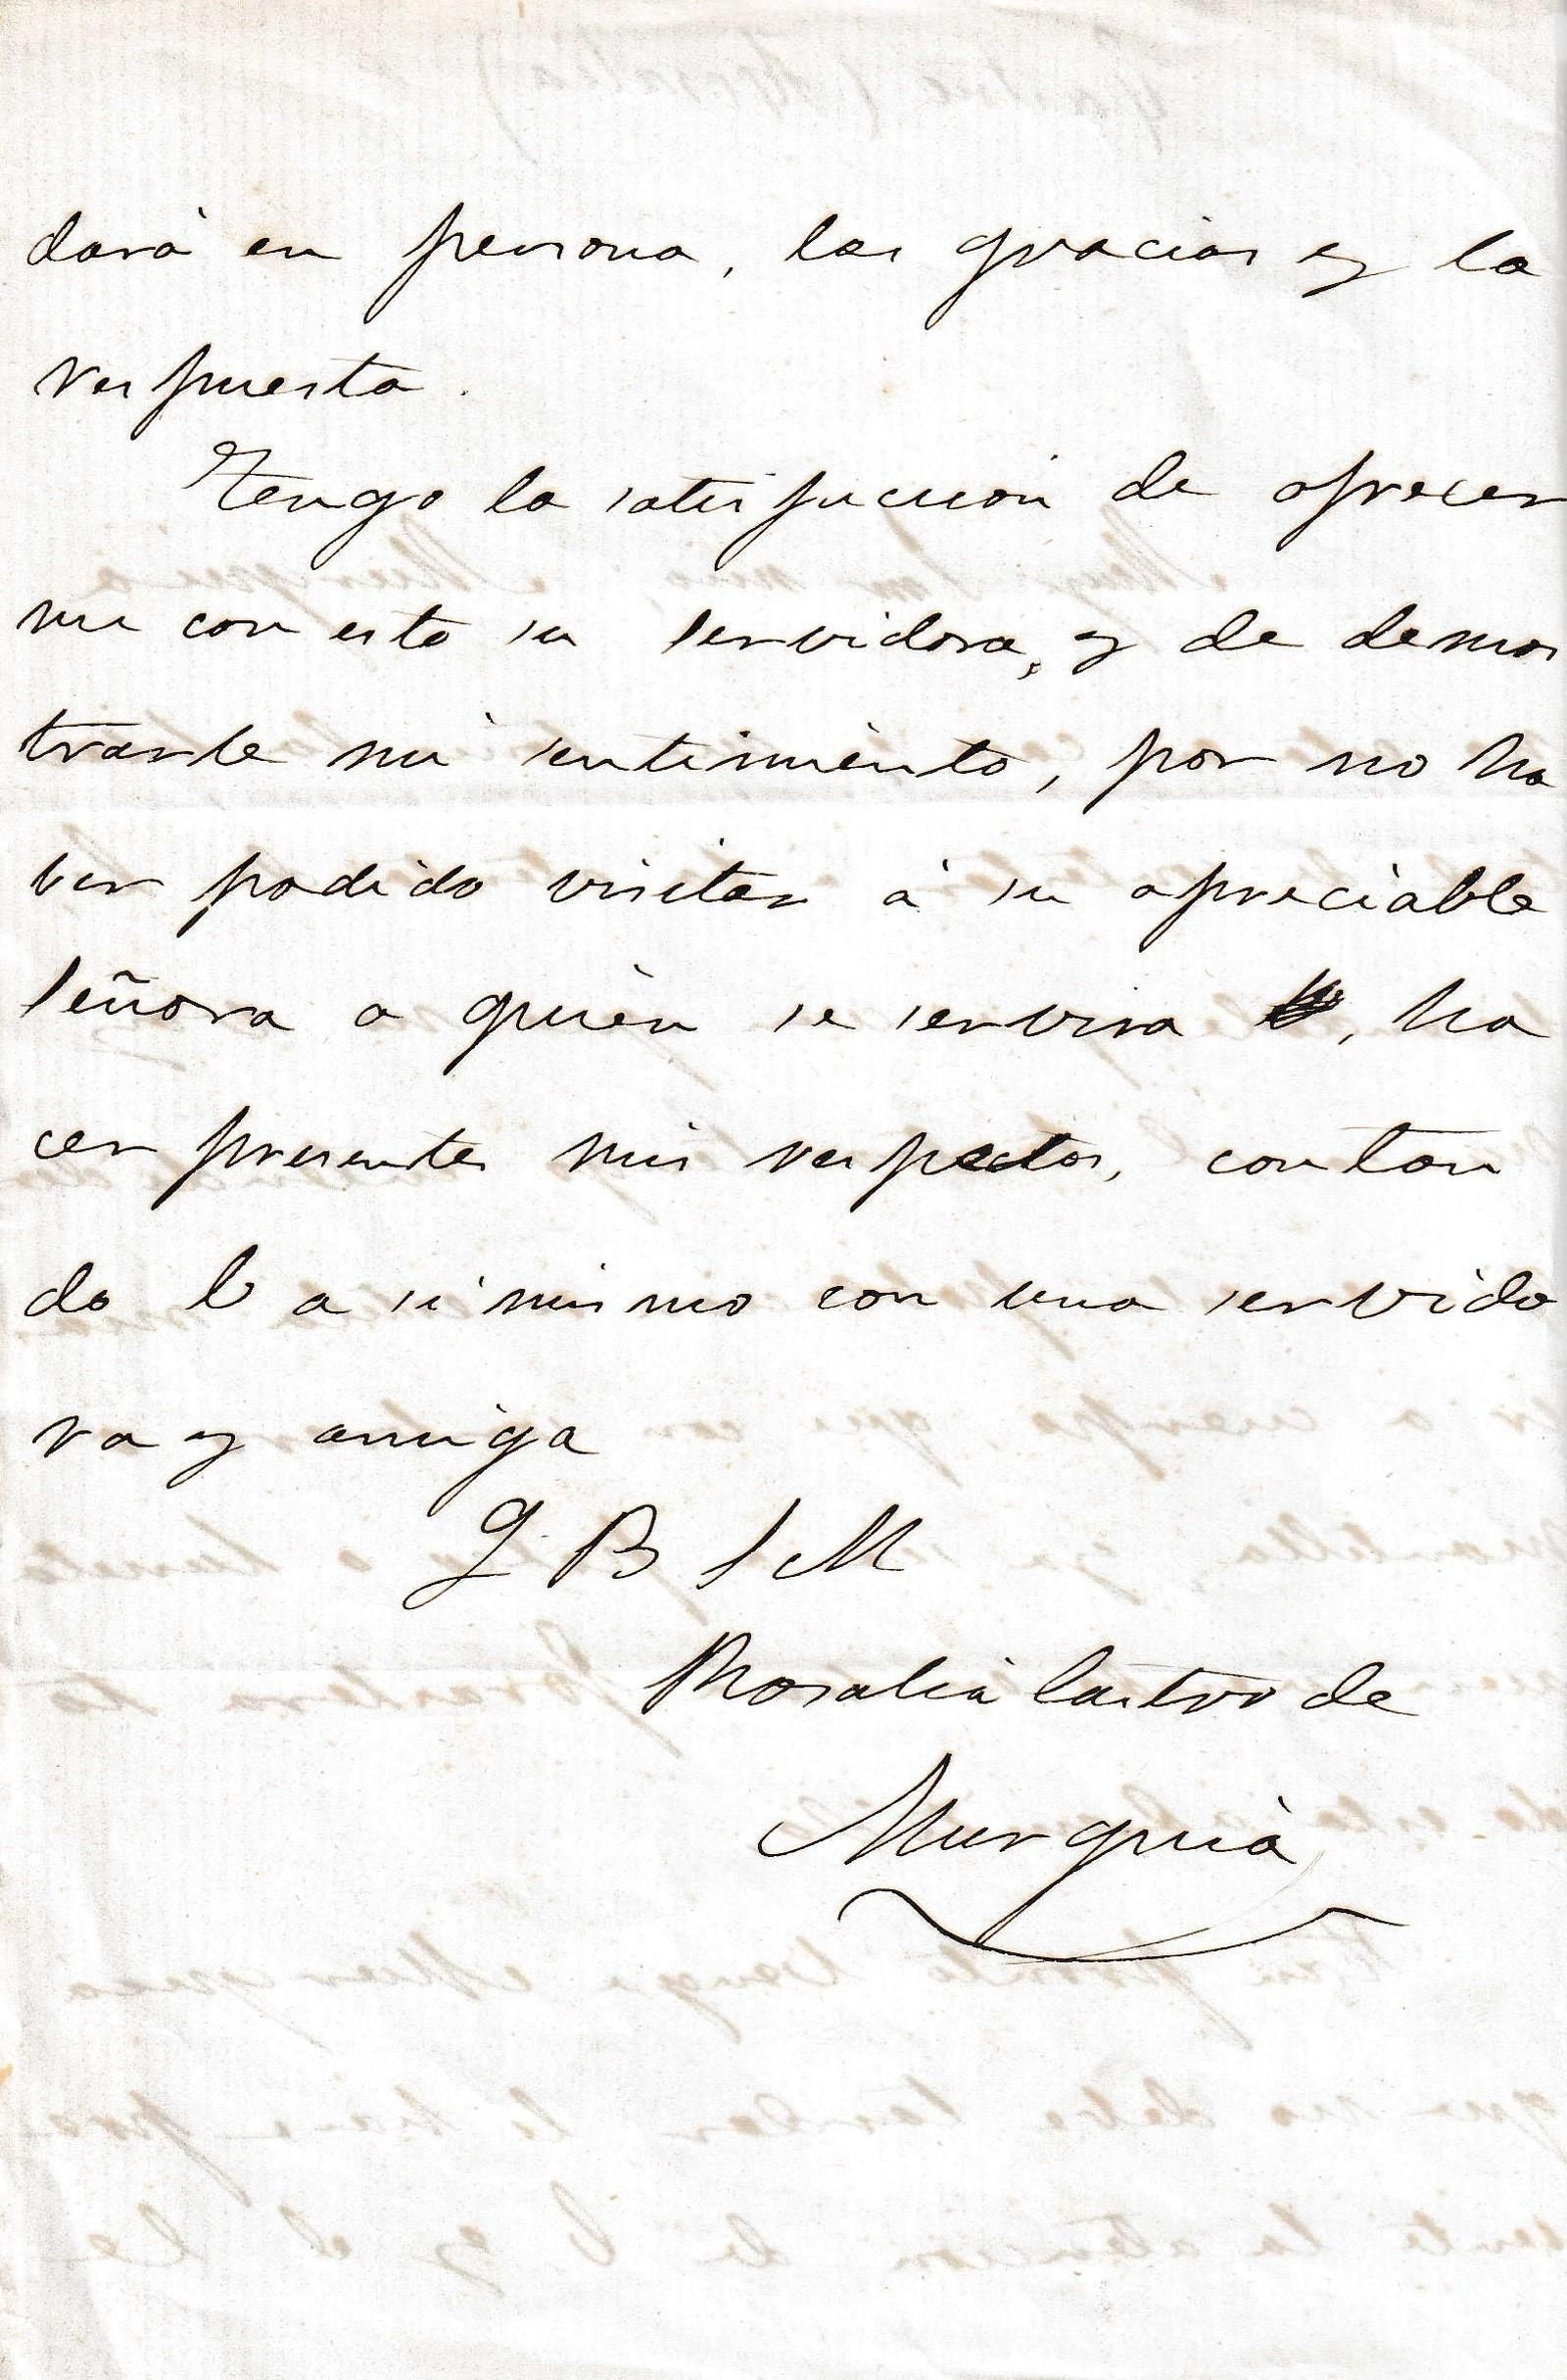 dará en persona, las gracias y la
respuesta.
Tengo la satisfaccion de ofrecer
me con esto su servidora, y de demos
trarle mi sentimiento, por no ha
ber podido visitar á su apreciable
señora a quién se servira, ha
cer presentes mis respectos, contan
do V a si mismo con una servido
ra y amiga
Q B S M
Rosalia Castro de
Murguia